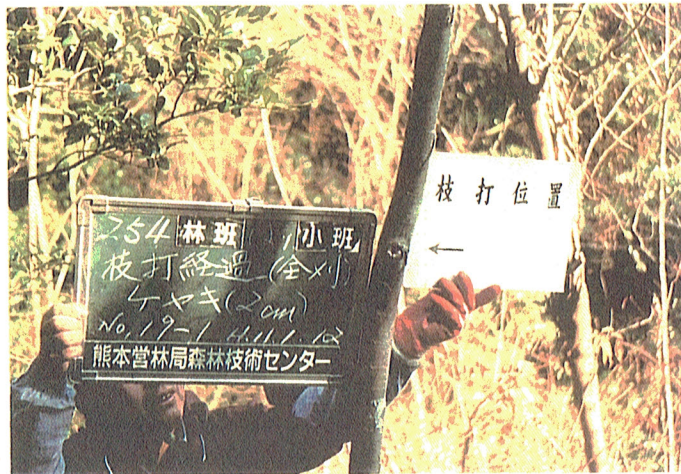 254 林班 い1 小班
枝打経過(全刈)
ケヤキ(2cm)
No.19-1 H.11.1.12
熊本営林局森林技術センター
枝打位置
←